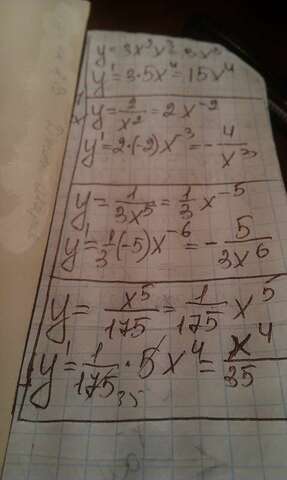 y = 3x³x² = 3x⁵
y' = 3·5x⁴ = 15x⁴
y = 2/x² = 2x⁻²
y' = 2·(-2)x⁻³ = -4/x³
y = 1/3x⁵ = 1/3 x⁻⁵
y' = 1/3(-5)x⁻⁶ = -5/3x⁶
y = x⁵/175 = 1/175 x⁵
y' = 1/175 · 5x⁴ = x⁴/35
35